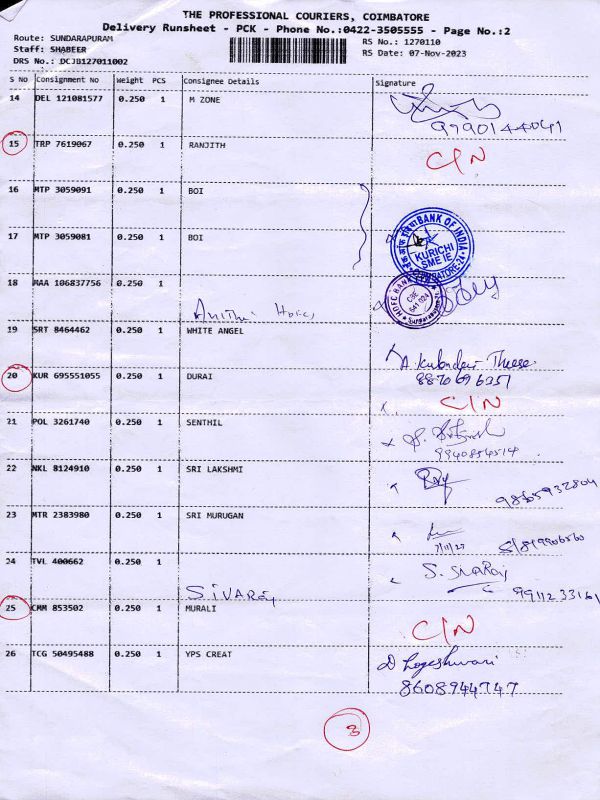 THE PROFESSIONAL COURIERS, COIMBATORE
Delivery Runsheet - PCK - Phone No.:0422-3505555 - Page No.:2
Route: SUNDARAPURAM
RS No.: 1270110
Staff: SHABEER
RS Date: 07-Nov-2023
DRS No.: DCJB127011002
S No Consignment No Weight PCS Consignee Details Signature
14 DEL 121081577 0.250 1 M ZONE
9990144041
15 TRP 7619067 0.250 1 RANJITH C/N
16 MTP 3059091 0.250 1 BOI
17 MTP 3059081 0.250 1 BOI
BANK OF INDIA
KURICHI
SME IE
18 MAA 106837756 0.250 1
HDFC BANK
CBE
641 024
19 SRT 8464462 0.250 1 WHITE ANGEL
8870696351
20 KUR 695551055 0.250 1 DURAI C/N
21 POL 3261740 0.250 1 SENTHIL
9940854514
22 NKL 8124910 0.250 1 SRI LAKSHMI
9865932804
23 MTR 2383980 0.250 1 SRI MURUGAN
24 TVL 400662 0.250 1 SIVARAJ
S. SIVARAJ
9911233161
25 CMM 853502 0.250 1 MURALI C/N
26 TCG 50495488 0.250 1 YPS CREAT D Logeshwari
8608944747
3